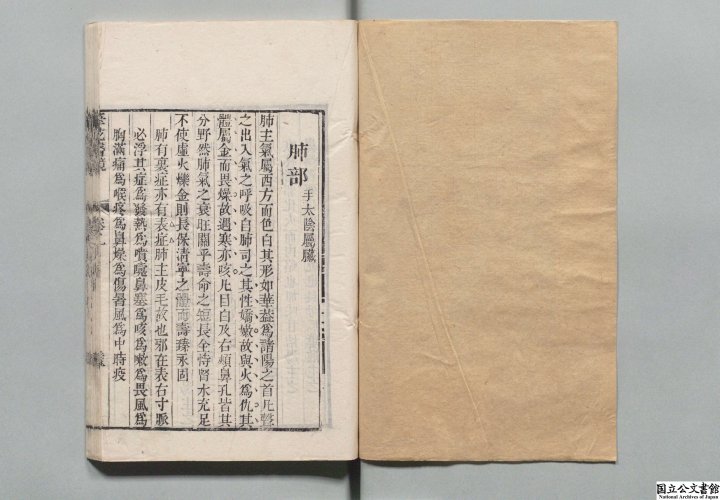 肺部 手太陰屬臟
肺主氣屬西方而色白其形如華蓋為諸陽之首凡聲
之出入氣之呼吸自肺司之其性嬌嫩故與火為仇其
體屬金而畏燥故遇寒亦咳凡目白及右頰鼻孔皆其
分野然肺氣之衰旺關乎壽命之短長全恃腎水充足
不使虛火爍金則長保清寧之體而壽臻永固
肺有裏症亦有表症肺主皮毛故也邪在表右寸脈
必浮其症為發熱為噴嚏鼻塞為咳為嗽為畏風為
胸滿痛為喉疼為鼻燥為傷暑風為中時疫
筆花醫鏡
国立公文書館
National Archives of Japan